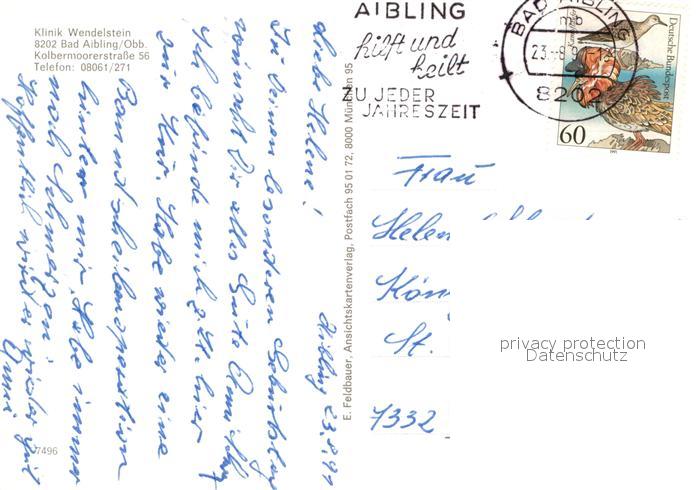 Klinik Wendelstein
8202 Bad Aibling/Obb.
Kolbermoorerstraße 56
Telefon: 08061/271
Aibling 23.8.91
Liebe Helene!
Zu Deinem besonderen Geburtstag
wünscht Dir alles Gute Anni
Ich befinde mich z. Zt. hier
zur Kur. Habe wieder eine
Bandscheibenoperation
hinter mir. Habe immer
noch Schmerzen.
Hoffentlich wird es wieder gut
Anni
7496
E. Feldbauer, Ansichtskartenverlag, Postfach 95 01 72, 8000 München 95
AIBLING
hilft und
heilt
ZU JEDER
JAHRESZEIT
BAD AIBLING
mb
8202
Deutsche Bundespost
60
1991
Frau
Helen
Kön
St.
7332
privacy protection
Datenschutz